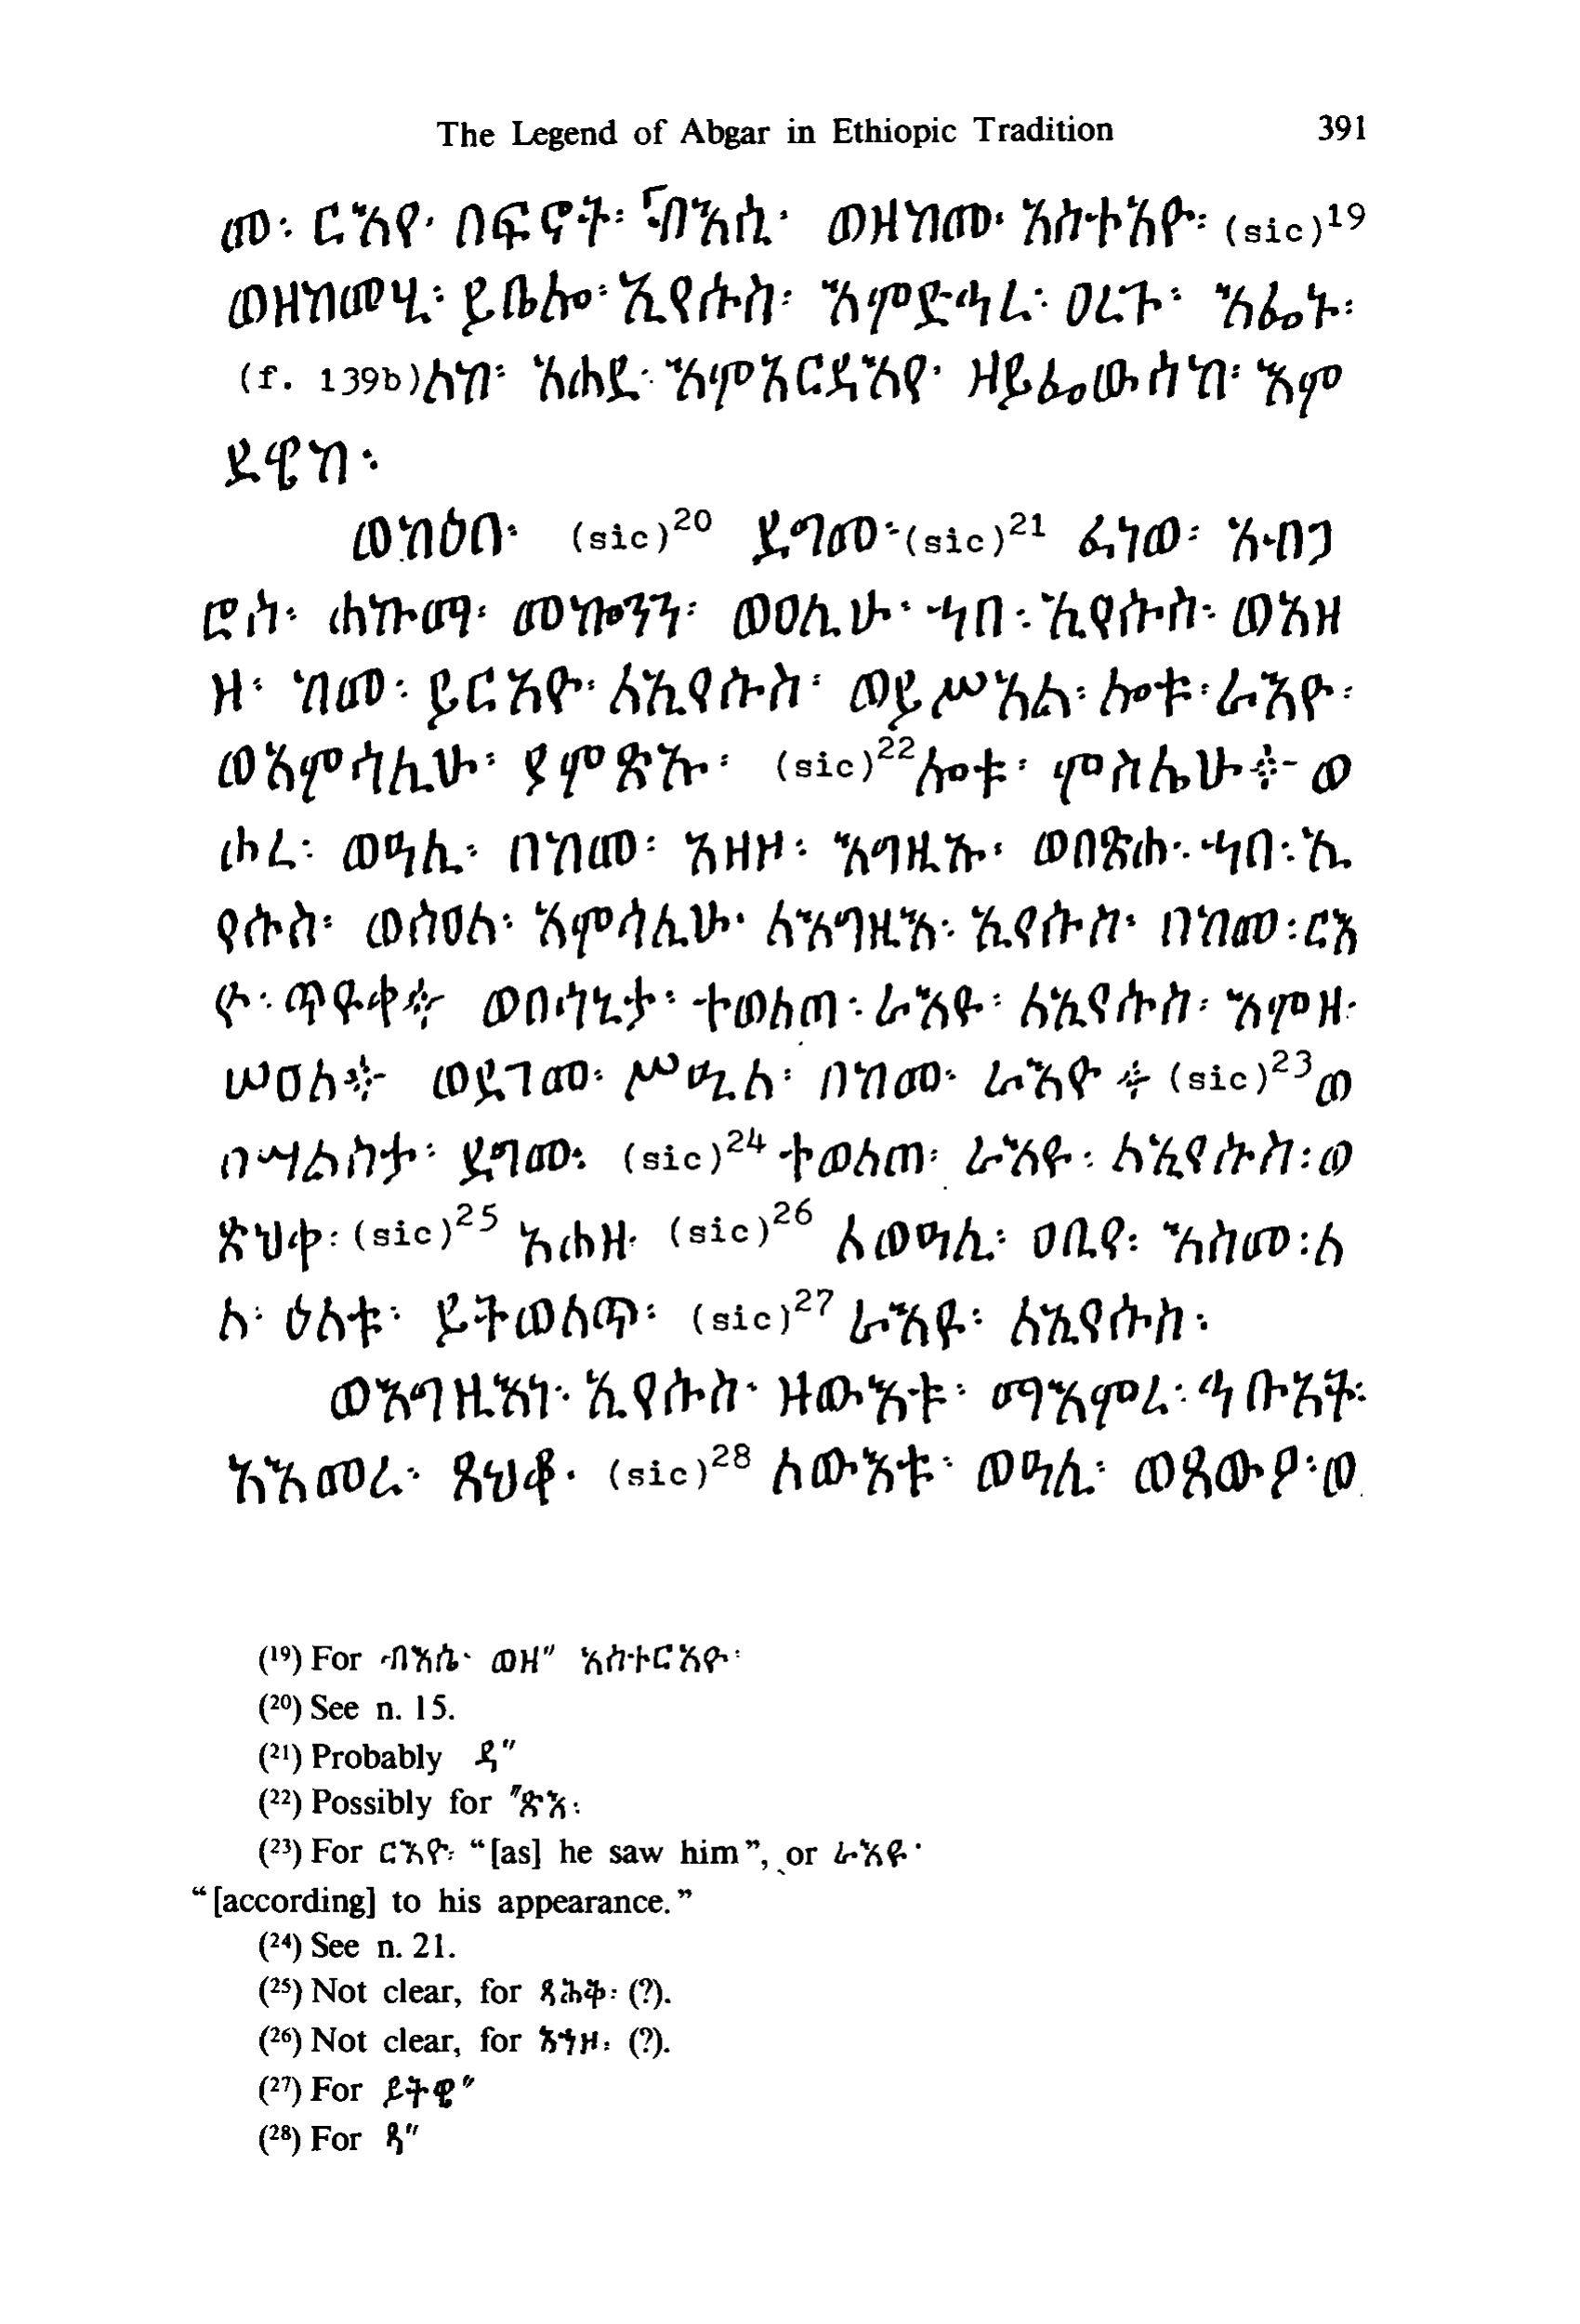 The Legend of Abgar in Ethiopic Tradition 391
መ፡ ርእየ፡ በፍኖት፡ ብእሲ፡ ወዘከመ፡ አስተአዮ፡ (sic)19
ወዘከመሂ፡ ይቤሎ፡ ኢየሱስ፡ እምድኅረ፡ ዐረጉ፡ እፌኑ፡
(f. 139b)ለከ፡ አሐደ፡ እምአርዳእየ፡ ዘይፌውሰከ፡ እም
ደዌከ፡
ወከዕበ፡ (sic)20 ደግመ፡(sic)21 ፈነወ፡ አብጋ
ሮስ፡ ሐኩማ፡ መኰንን፡ ወዐሊሁ፡ ኀበ፡ ኢየሱስ፡ ወአዘ
ዞ፡ ከመ፡ ይርአዮ፡ ለኢየሱስ፡ ወይሥአል፡ ሎቱ፡ ራእዮ፡
ወአምሳሊሁ፡ ያምጽኡ፡ (sic)22ሎቱ፡ ምስሌሁ፨ ወ
ሖረ፡ ወዓሊ፡ በከመ፡ አዘዞ፡ እግዚኡ፡ ወበጽሐ፡ ኀበ፡ ኢ
የሱስ፡ ወሰዐለ፡ አምሳሊሁ፡ ለእግዚእ፡ ኢየሱስ፡ በከመ፡ ርእ
ዮ፡ ጥዩቀ፨ ወበሳኒታ፡ ተወለጠ፡ ራእዩ፡ ለኢየሱስ፡ እምዘ፡
ሠዐለ፨ ወደገመ፡ ሥዒለ፡ በከመ፡ ራእዮ፨ (sic)23ወ
በሣልስታ፡ ደግመ፡ (sic)24 ተወለጠ፡ ራእዩ፡ ለኢየሱስ፡ ወ
ጽህቀ፡ (sic)25 አሐዘ፡ (sic)26 ለወዓሊ፡ ዐቢየ፡ እስመ፡ ለ
ለ፡ ዕለቱ፡ ይትወለጥ፡ (sic)27 ራእዩ፡ ለኢየሱስ፡
ወእግዚእነ፡ ኢየሱስ፡ ዘውእቱ፡ ማእምረ፡ ኅቡአት፡
አእመረ፡ ጸህቆ፡ (sic)28 ለውእቱ፡ ወዓሊ፡ ወጸውዖ፡ ወ
(19) For ብእሴ፡ ወዘ″ አስተርአዮ፡
(20) See n. 15.
(21) Probably ዳ″
(22) Possibly for ″ጽእ፡
(23) For ርእዮ፡ “[as] he saw him”, or ራእዩ፡
“[according] to his appearance.”
(24) See n. 21.
(25) Not clear, for ጻሕቅ፡ (?).
(26) Not clear, for አኀዞ፡ (?).
(27) For ይትዌ″
(28) For ጻ″